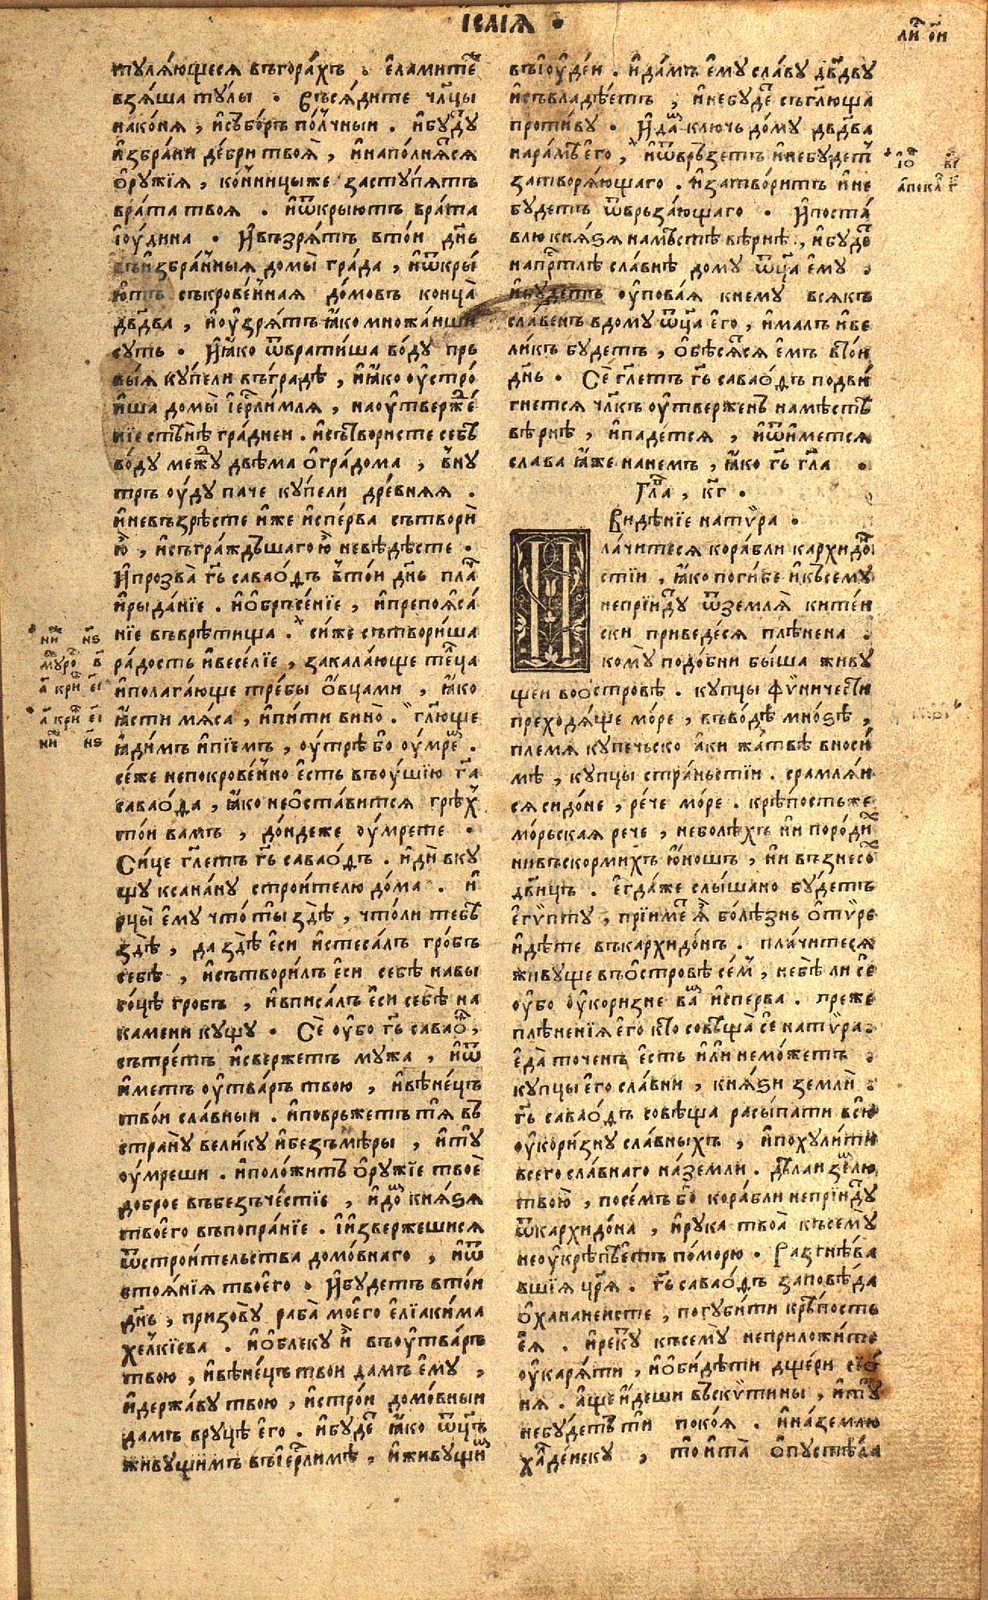 І҆саі́ѧ .
ли́ст о҃и
туля́ющеся въгора́хъ . є҆лами́те
взя́ша ту́лы . Въся́дите чл҃цы
нако́ня , и҆субо́ръ по́лчныи . и҆бу́ду
и҆збра́ни де́бри твоя̀ , и҆напо́лнятся
ѻ҆ру́жїя , ко́нницыже засту́пятъ
врата̀ твоя̀ . и҆ѿкры́ютъ врата̀
і҆ю́дина . И҆възря́тъ вто́и дн҃ь
въи҆збра́нныя до́мы гра́да , и҆ѿкры́
ютъ съкрове́нная домо́въ конца̀
дв҃два , и҆оу҆зря́тъ ꙗ҆́ко мно́жаиши
суть . И҆ꙗ҆́ко ѿврати́ша во́ду пръ
выя купе́ли въгра́дѣ , и҆ꙗ҆́ко оу҆стро́
и҆ша до́мы і҆ерⷭ҇ли́мля , наоу҆твержⷣе́
нїе стѣнѣ̀ гра́днеи . и҆сътвори́сте себѣ̀
во́ду межⷣу двѣма̀ ѻ҆гра́дома , вну́
трь оу҆́ду па́че купе́ли дре́вняя .
и҆невъзрѣ́сте и҆́же и҆спе́рва сътвори́
ю҆̀ , и҆съгражⷣьшаго ю҆̀ невѣ́дѣсте .
И҆прозва̀ гⷭ҇ь саваѡ҆́ѳъ вто́и дн҃ь пла́ч
и҆рыда́нїе . и҆ѻ҆бръсе́нїе , и҆препоя҆са́
нїе въвре́тища . сі́иже сътвори́ша
ра́дость и҆весе́лїе , закала́юще телца̀
и҆полага́юще тре́бы ѻ҆́вцами , ꙗ҆́ко
ꙗ҆́сти мяса̀ , и҆пи́ти вино̀ . гл҃юще
ꙗ҆ди́мъ и҆пїе́мъ , оу҆́трѣ бо оу҆́мрем .
се́же непокрове́нно є҆́сть въоу҆́шїю гⷭ҇а
саваѡ҆́ѳа , ꙗ҆́ко неѻ҆ста́вится грѣ́хъ
то́и ва́мъ , до́ндеже оу҆́мрете .
Си́це гл҃етъ гⷭ҇ь саваѡ҆́ѳъ . и҆дѝ вку
щу ксана́ну строи́телю до́ма . и҆
рцы̀ є҆му̀ что̀ ты̀ здѐ , что́ли тебѣ̀
здѐ , да здѐ є҆сѝ и҆стеса́лъ гро́бъ
себѣ̀ , и҆сътвори́лъ є҆сѝ себѣ̀ навы
со́цѣ гро́бъ , и҆вписа́лъ є҆сѝ себѣ̀ на
ка́мени ку́щу . Сѐ оу҆́бо гⷭ҇ь саваѡ҆́ѳ,
сътре́тъ и҆све́ржетъ му́жа , и҆ѿ
и҆́метъ оу҆́тварь твою̀ , и҆вѣне́цъ
тво́и сла́вныи . и҆пове́ржетъ тя̀ въ
страну̀ вели́ку и҆безъмѣ́ры , и҆ту̀
оу҆́мреши . и҆поло́житъ ѻ҆ру́жїе твоѐ
до́брое въбезъче́стїе , и҆до́м кня́ѕя
твоего̀ въпопра́нїе . и҆и҆зве́ржешися
ѿстрои́телства домо́внаго , и҆ѿ
стоя́нїя твоего̀ . И҆бу́детъ вто́и
дн҃ь , призову̀ раба̀ моего̀ є҆лїаки́ма
хелкі́ева . и҆ѻ҆блеку̀ и҆̀ въоу҆́тварь
твою̀ , и҆вѣне́цъ тво́и да́мъ є҆му̀ ,
и҆держа́ву твою̀ , и҆стро́и домо́вныи
да́мъ вру́цѣ є҆го̀ . и҆бу́де ꙗ҆́ко ѿц҃ъ
живу́щимъ въі҆ерⷭ҇ли́мѣ , и҆живу́щим
въі҆ю́деи . и҆да́мъ є҆му̀ сла́ву дв҃дву
и҆съвладѣ́етъ , и҆небу́де съгл҃юща
проти́ву . И҆да́м клю́чь до́му дв҃два
нара́мѣ є҆го̀ , и҆ѿвръзе́тъ и҆небу́дет
затворя́ющаго . и҆затвори́тъ и҆не
бу́детъ ѿвръза́ющаго . И҆поста́
влю кня́ѕя намѣ́стѣ вѣ́рнѣ , и҆бу́де
напрⷭ҇то́лѣ сла́внѣ до́му ѿц҃а є҆му̀ .
и҆бу́детъ оу҆пова́я кнему̀ вся́къ
сла́венъ вдому̀ ѿц҃а є҆го̀ , и҆ма́лъ и҆ве
ли́къ бу́детъ , ѻ҆бѣ́сятся є҆мъ вто́и
дн҃ь . Сѐ гл҃етъ гⷭ҇ь саваѡ҆́ѳъ подви́
гнется чл҃къ оу҆твержéнъ намѣ́стѣ
вѣ́рнѣ , и҆паде́тся , и҆ѿи҆́мется
сла́ва ꙗ҆́же нане́мъ , ꙗ҆́ко гⷭ҇ь гл҃а .
Гла́в , к҃г .
Видѣ́нїе нати́ра .
Пла́читеся кораблѝ кархидо́н
стіи , ꙗ҆́ко поги́бе и҆ксему̀
непрїи́дду ѿземля̀ китеи
ски приведе́ся плѣне́на .
кому̀ подо́бни бы́ша живу
щеи воѻ҆́стровѣ . купцы̀ фѷничестіи
преходя́ще мо́ре , въво́дѣ мно́ѕѣ ,
пле́мя купе́чьско а҆́ки жа́твѣ вноси́
мѣ , купцы̀ стра́ньстіи . срамля́и
ся сидо́не , ре́че мо́ре . крѣ́постьже
мо́рьская ре́че , неболѣ́хъ ни породи́х
нивъскорми́хъ ю҆́ношъ , ни възнесо́х
дв҃ицъ . є҆гда́же слы́шано бу́детъ
є҆гѵ́пту , прїи́ме я҆̀ болѣ́знь ѻ҆ти́ре
и҆дѣ́те въкархидо́нъ . пла́читеся
живу́ще въѻ҆́стровѣ се́мъ , небѣ̀ ли сѐ
оу҆́бо оу҆кори́зне ва́м и҆спе́рва . пре́же
плѣне́нїя є҆го̀ кто̀ совѣща̀ сѐ нати́ра .
є҆да̀ то́ченъ є҆́сть и҆́ли немо́жетъ .
купцы̀ є҆го̀ сла́вни , кня́ѕи землѝ .
гⷭ҇ь саваѡ҆́ѳъ совѣща̀ расы́пати всю̀
оу҆кори́зну сла́вныхъ , и҆похули́ти
всего̀ сла́внаго на́земли . дѣ́лаи зе́млю
твою̀ , посе́мъ бо кораблѝ непрїи́дду
ѿкархидо́на , и҆рука̀ твоя̀ късему̀
неоу҆крѣпѣ́етъ помо́рю . Разгнѣ́ва
вшїя цр҃я . гⷭ҇ь саваѡ҆́ѳъ заповѣ́да
ѻ҆ханане́исте , погуби́ти крѣ́пость
є҆я̀ . и҆реку̀ късему̀ неприложи́те
оу҆каря́ти , и҆ѻ҆би́дѣти дще́ри сїѡ́
ня . а҆́ще и҆́деши въски́тины , и҆ту̀
небу́детъ ти поко́я . и҆на́землю
халде́иску , то и҆та̀ ѻ҆пустѣ́ла